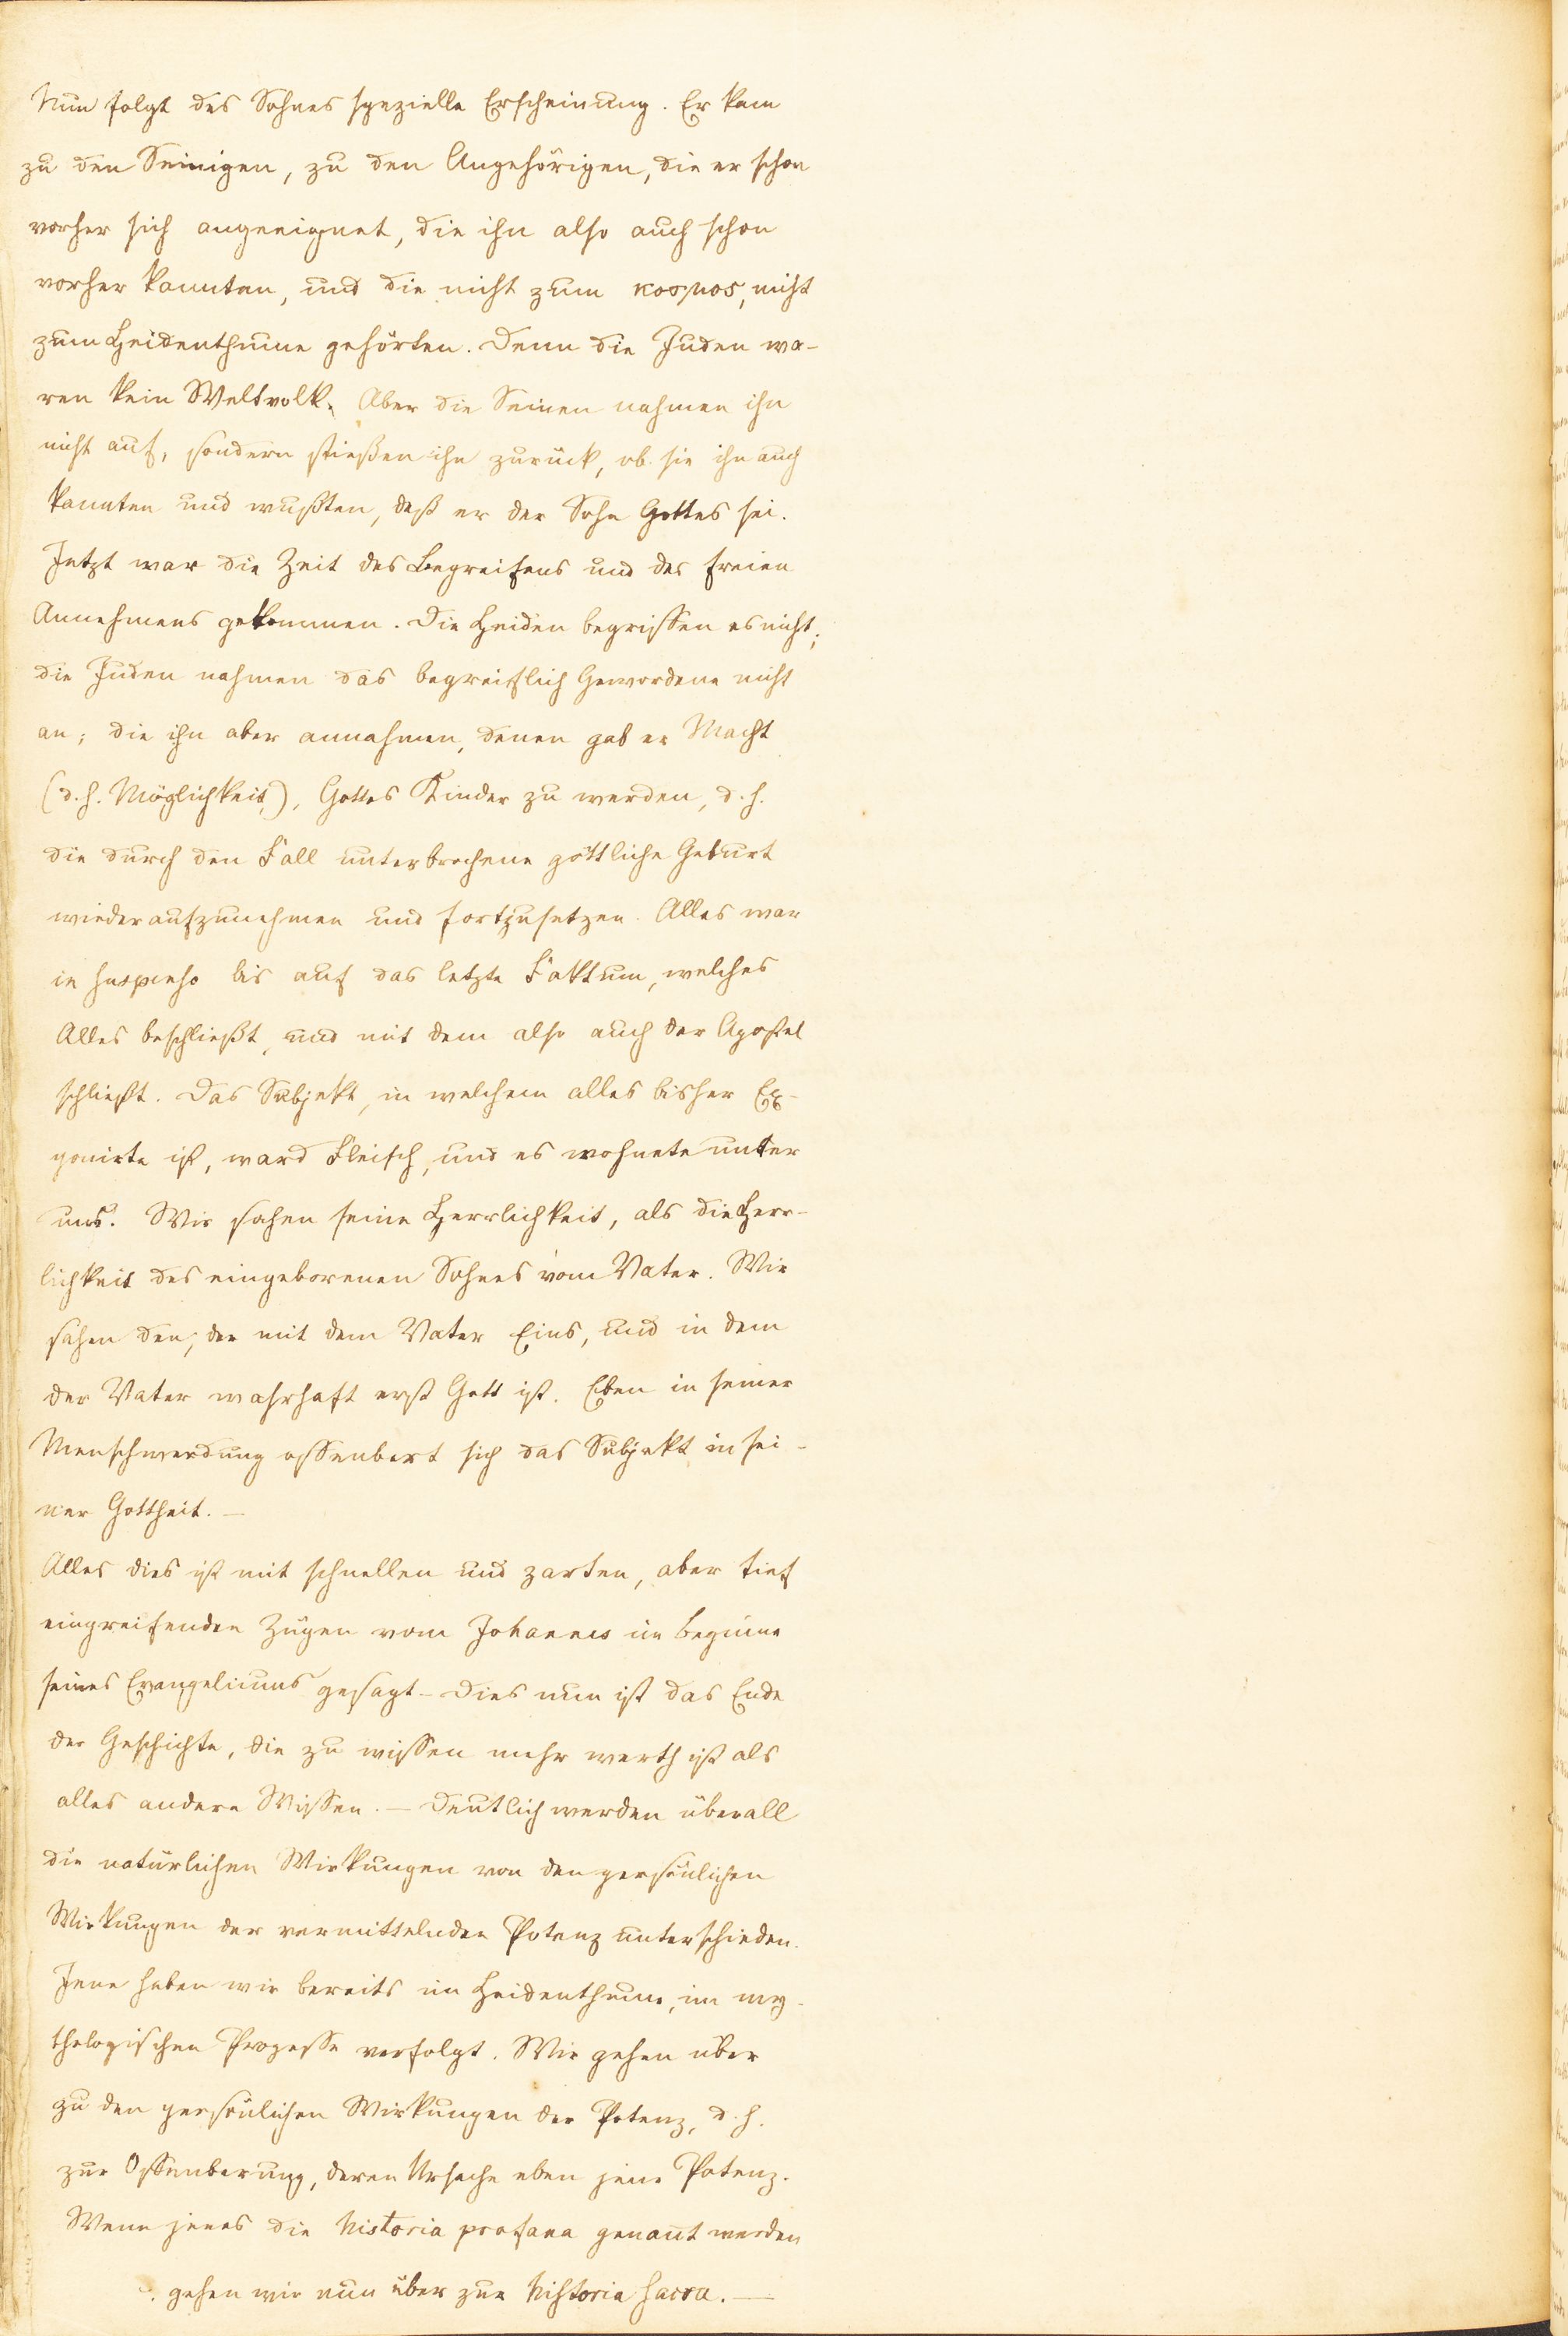 Nun folgt des Sohnes spezielle Erscheinung. Er kam
zu den Seinigen, zu den Angehörigen, die er schon
vorher sich angeeignet, die ihn also auch schon
vorher kannten, und die nicht zum κοσμος, nicht
zum Heidenthume gehörten. Denn die Juden wa-
ren kein Weltvolk. Aber die Seinen nahmen ihn
nicht auf, sondern stießen ihn zurück, ob sie ihn auch
kannten und wußten, daß er der Sohn Gottes sei.
Jetzt war die Zeit des Begreifens und des freien
Annehmens gekommen. Die Heiden begriffen es nicht;
die Juden nahmen das begreiflich Gewordene nicht
an; die ihn aber annahmen, denen gab er Macht
(d.h. Möglichkeit), Gottes Kinder zu werden, d.h.
die durch den Fall unterbrochene göttliche Geburt
wiederaufzunehmen und fortzusetzen. Alles war
in suspenso bis auf das letzte Faktum, welches
Alles beschließt, und mit dem also auch der Apostel
schließt. Das Subjekt, in welchem alles bisher Ex-
ponirte ist, ward Fleisch, und es wohnete unter
uns. Wir sahen seine Herrlichkeit, als die Herr-
lichkeit des eingeborenen Sohnes vom Vater. Wir
sahen den, der mit dem Vater Eins, und in dem
der Vater wahrhaft erst Gott ist. Eben in seiner
Menschwerdung offenbart sich das Subjekt in sei-
ner Gottheit. —
Alles dies ist mit schnellen und zarten, aber tief
eingreifenden Zügen vom Johannes im Beginne
seines Evangeliums gesagt – Dies nun ist das Ende
der Geschichte, die zu wissen mehr werth ist als
alles andere Wissen. — Deutlich werden überall
die natürlichen Wirkungen von den persönlichen
Wirkungen der vermittelnden Potenz unterschieden.
Jene haben wir bereits im Heidenthume, im my-
thologischen Prozesse verfolgt. Wir gehen über
zu den persönlichen Wirkungen der Potenz, d.h.
zur Offenbarung, deren Ursache eben jene Potenz.
Wenn jenes die historia profana genannt werden
gehen wir nun über zur historia sacra. —